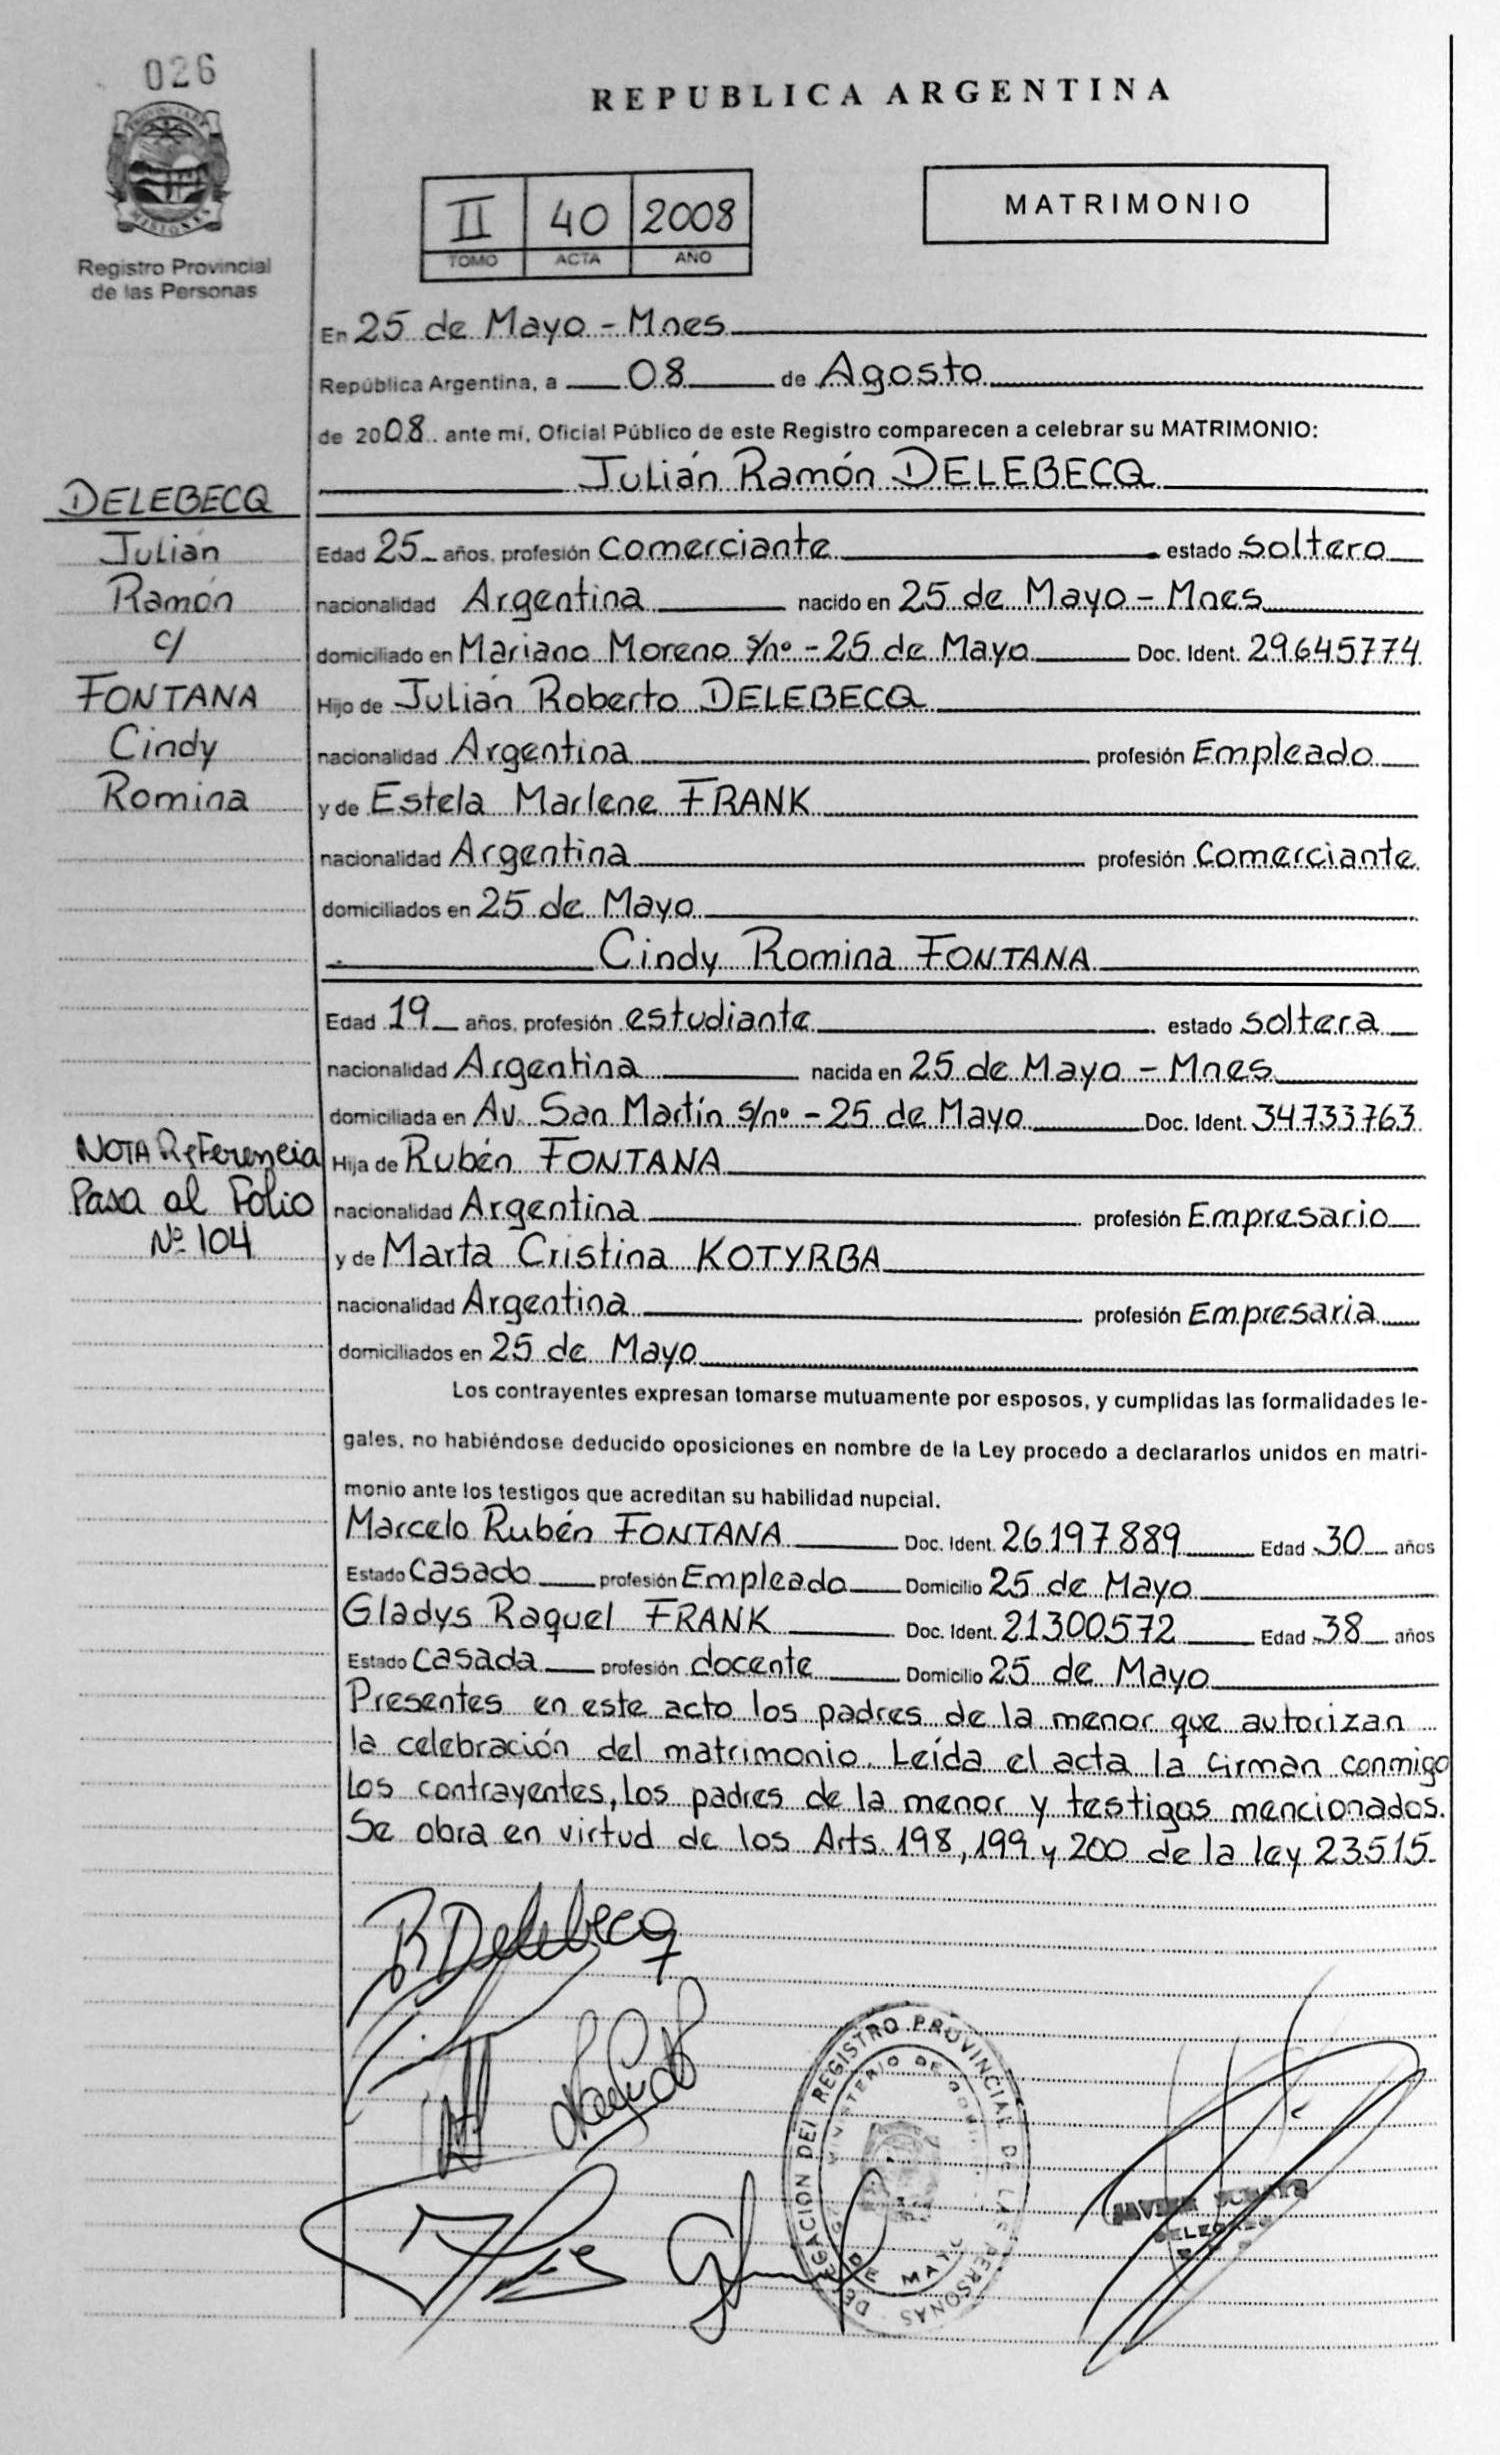 026
REPUBLICA ARGENTINA
PROVINCIA DE MISIONES
Registro Provincial
de las Personas
II 40 2008
TOMO ACTA AÑO
MATRIMONIO
En 25 de Mayo - Mnes
República Argentina, a 08 de Agosto
de 2008. ante mí, Oficial Público de este Registro comparecen a celebrar su MATRIMONIO:
Julián Ramón DELEBECQ
DELEBECQ
Julian
Ramón
c/
FONTANA
Cindy
Romina
Edad 25 años, profesión comerciante estado soltero
nacionalidad Argentina nacido en 25 de Mayo - Mnes
domiciliado en Mariano Moreno s/nº - 25 de Mayo Doc. Ident. 29645774
Hijo de Julián Roberto DELEBECQ
nacionalidad Argentina profesión Empleado
y de Estela Marlene FRANK
nacionalidad Argentina profesión Comerciante
domiciliados en 25 de Mayo
Cindy Romina FONTANA
Edad 19 años, profesión estudiante estado soltera
nacionalidad Argentina nacida en 25 de Mayo - Mnes
domiciliada en Av. San Martín s/nº - 25 de Mayo Doc. Ident. 34733763
NOTA Referencia
Pasa al Folio
Nº 104
Hija de Rubén FONTANA
nacionalidad Argentina profesión Empresario
y de Marta Cristina KOTYRBA
nacionalidad Argentina profesión Empresaria
domiciliados en 25 de Mayo
Los contrayentes expresan tomarse mutuamente por esposos, y cumplidas las formalidades le-
gales, no habiéndose deducido oposiciones en nombre de la Ley procedo a declararlos unidos en matri-
monio ante los testigos que acreditan su habilidad nupcial.
Marcelo Rubén FONTANA Doc. Ident. 26197889 Edad 30 años
Estado Casado profesión Empleado Domicilio 25 de Mayo
Gladys Raquel FRANK Doc. Ident. 21300572 Edad 38 años
Estado Casada profesión docente Domicilio 25 de Mayo
Presentes en este acto los padres de la menor que autorizan
la celebración del matrimonio. Leída el acta la firman conmigo
los contrayentes, los padres de la menor y testigos mencionados.
Se obra en virtud de los Arts. 198, 199 y 200 de la ley 23515.
R Delebecq
DELEGACION DEL REGISTRO PROVINCIAL DE LAS PERSONAS
MINISTERIO DE
DE MAYO
JAVIER